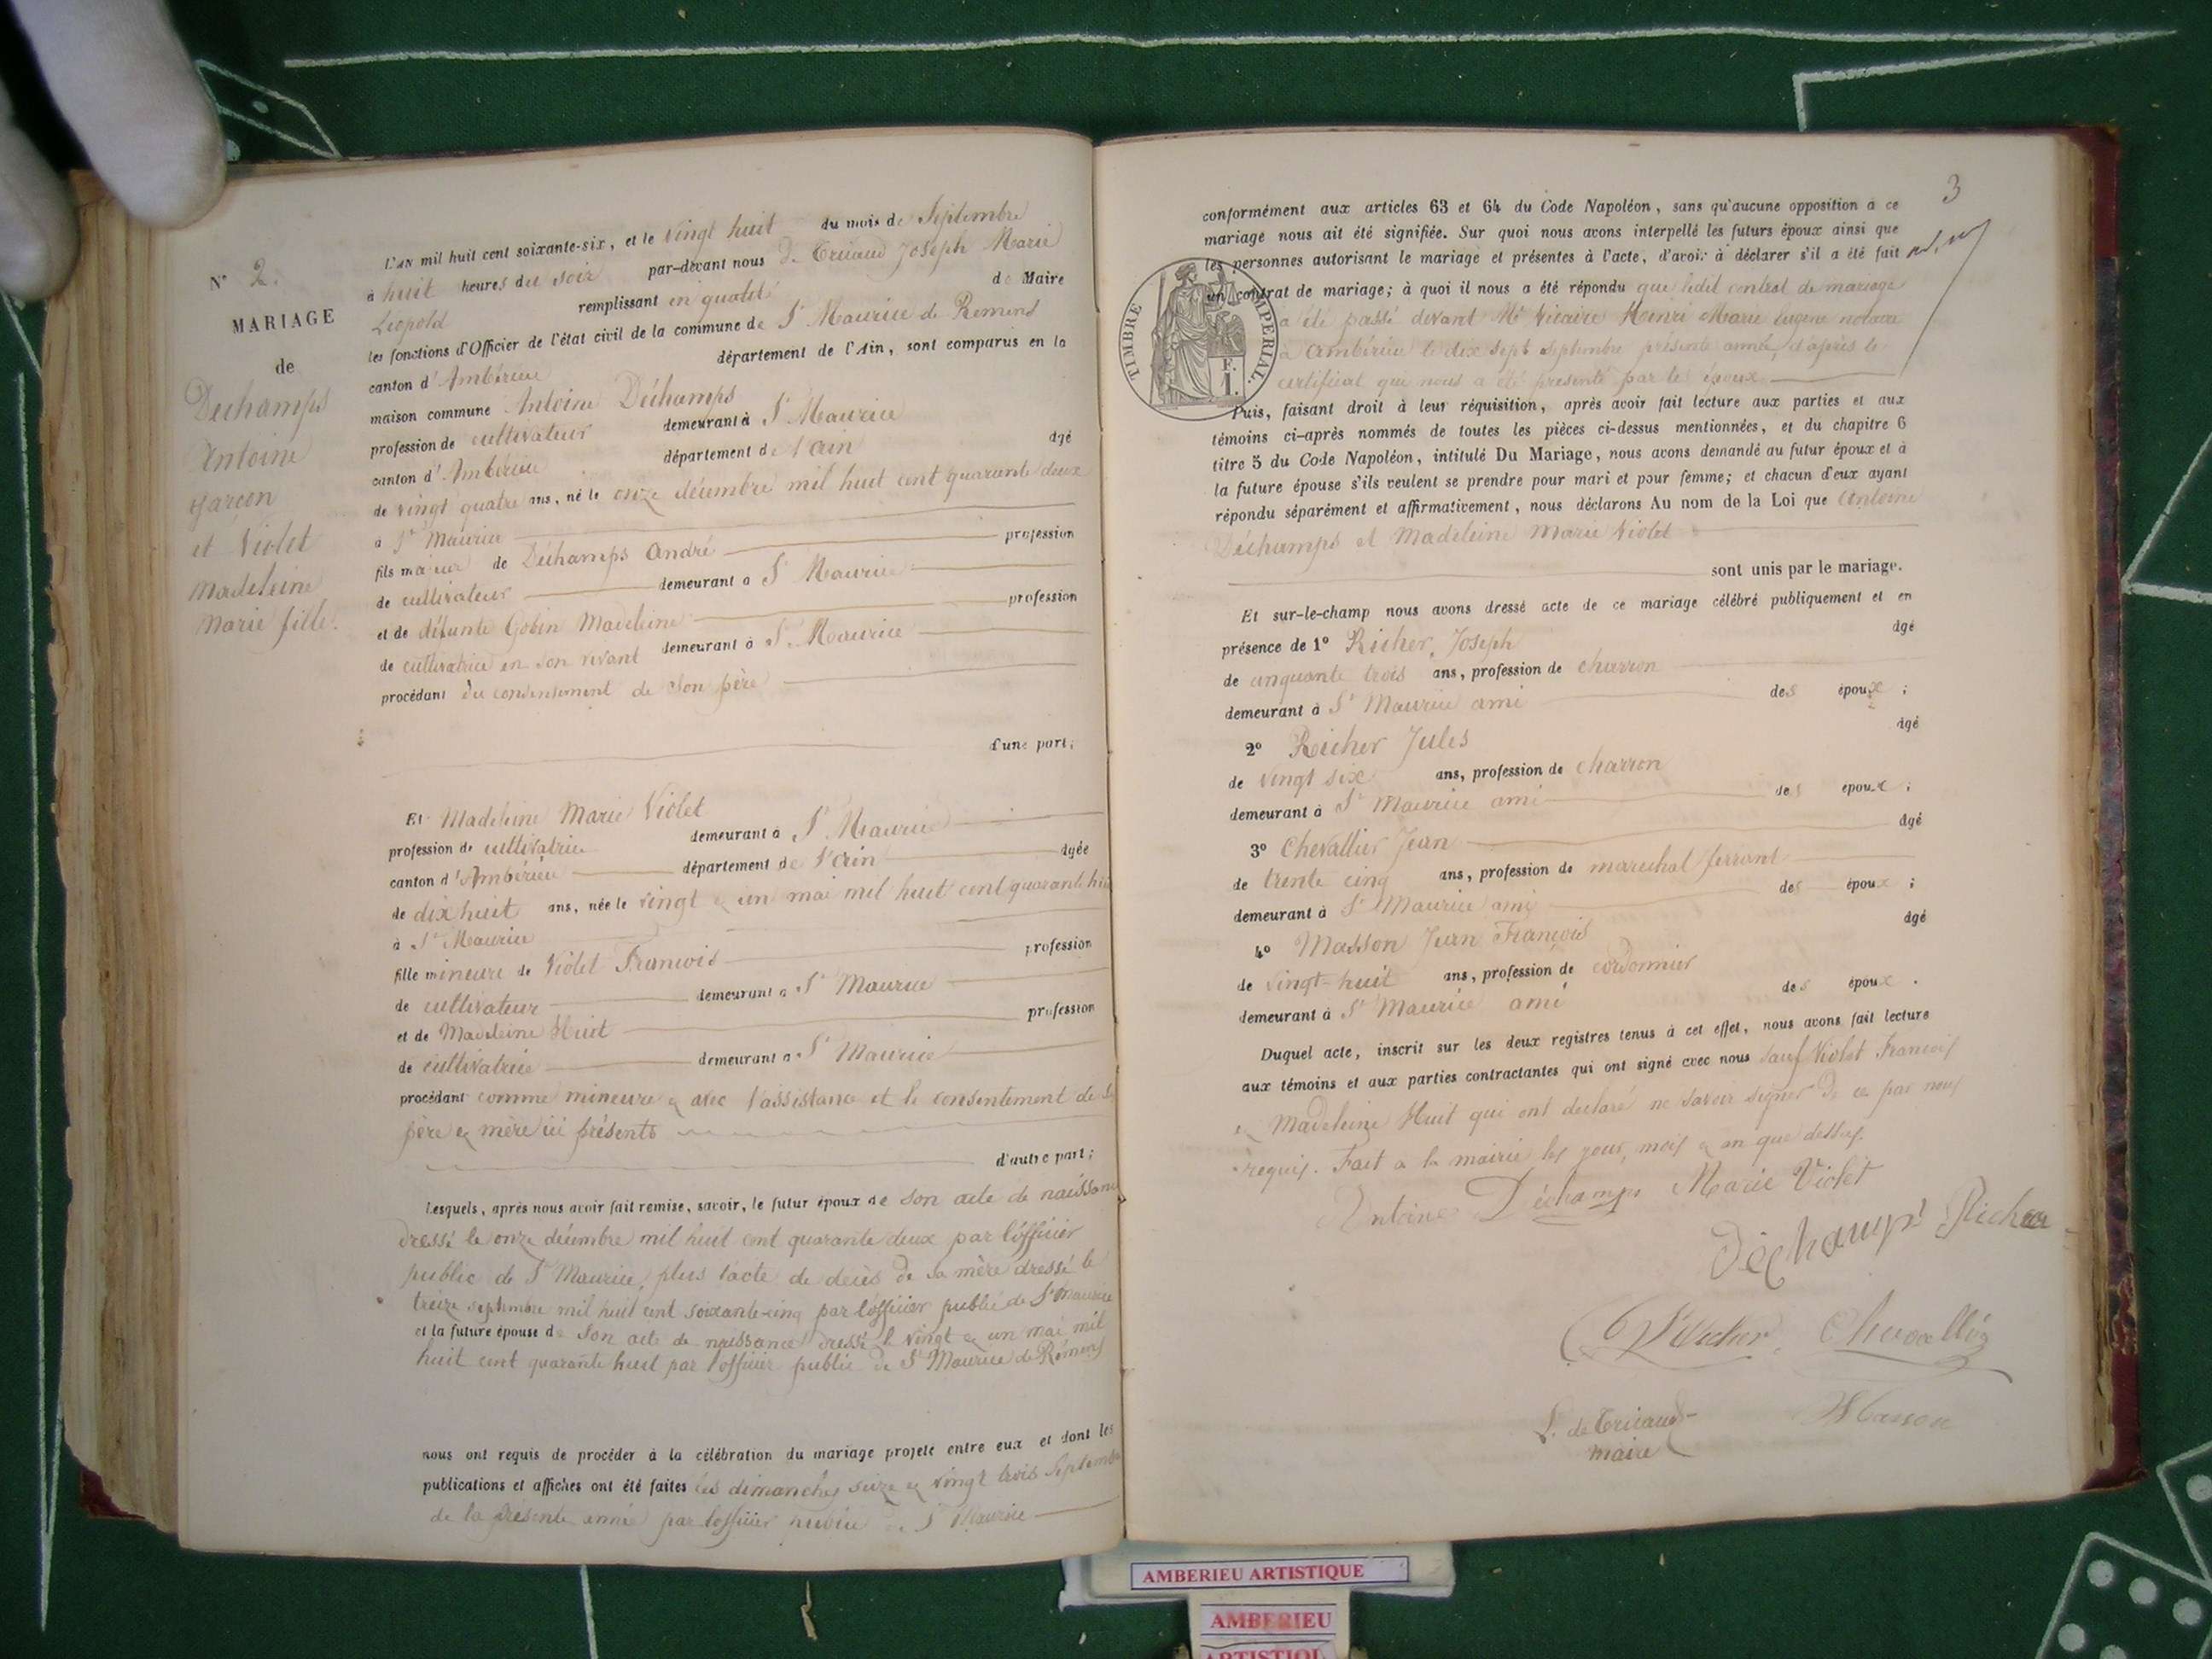 N° 2.
MARIAGE
de
Déchamps
Antoine
garçon
et Violet
Madeleine
Marie fille.
L'AN mil huit cent soixante-six, et le vingt huit du mois de Septembre
à huit heures du soir par-devant nous De Tricaud Joseph Marie
Léopold remplissant en qualité de Maire
les fonctions d'Officier de l'état civil de la commune de St Maurice de Remens
canton d'Ambérieu département de l'Ain, sont comparus en la
maison commune Antoine Déchamps
profession de cultivateur demeurant à St Maurice
canton d'Ambérieu département de l'ain âgé
de vingt quatre ans, né le onze décembre mil huit cent quarante deux
à St Maurice
fils majeur de Déchamps André profession
de cultivateur demeurant à St Maurice
et de défunte Gobin Madeleine profession
de cultivatrice en son vivant demeurant à St Maurice
procédant du consentement de son père
d'une part;
Et Madeleine Marie Violet
profession de cultivatrice demeurant à St Maurice
canton d'Ambérieu département de l'ain âgée
de dix huit ans, née le vingt & un mai mil huit cent quarante huit
à St Maurice
fille mineure de Violet François profession
de cultivateur demeurant à St Maurice
et de Madeleine Huit profession
de cultivatrice demeurant à St Maurice
procédant comme mineure & avec l'assistance et le consentement de ses
père & mère ici présents
d'autre part;
Lesquels, après nous avoir fait remise, savoir, le futur époux de son acte de naissance
dressé le onze décembre mil huit cent quarante deux par l'officier
public de St Maurice, plus l'acte de décès de sa mère dressé le
treize septembre mil huit cent soixante-cinq par l'officier public de St Maurice
et la future épouse de son acte de naissance dressé le vingt & un mai mil
huit cent quarante huit par l'officier public de St Maurice de Rémens
nous ont requis de procéder à la célébration du mariage projeté entre eux et dont les
publications et affiches ont été faites les dimanches seize & vingt trois Septembre
de la présente année par l'officier public de St Maurice
3
conformément aux articles 63 et 64 du Code Napoléon, sans qu'aucune opposition à ce
mariage nous ait été signifiée. Sur quoi nous avons interpellé les futurs époux ainsi que
les personnes autorisant le mariage et présentes à l'acte, d'avoir à déclarer s'il a été fait
un contrat de mariage; à quoi il nous a été répondu que ledit contrat de mariage
a été passé devant Me Vicaire Henri Marie Eugène notaire
à Ambérieu le dix sept septembre présente année, d'après le
certificat qui nous a été présenté par les époux
TIMBRE IMPERIAL.
F.
1.
Puis, faisant droit à leur réquisition, après avoir fait lecture aux parties et aux
témoins ci-après nommés de toutes les pièces ci-dessus mentionnées, et du chapitre 6
titre 5 du Code Napoléon, intitulé Du Mariage, nous avons demandé au futur époux et à
la future épouse s'ils veulent se prendre pour mari et pour femme; et chacun d'eux ayant
répondu séparément et affirmativement, nous déclarons Au nom de la Loi que Antoine
Déchamps et Madeleine Marie Violet
sont unis par le mariage.
Et sur-le-champ nous avons dressé acte de ce mariage célébré publiquement et en
présence de 1° Richer, Joseph âgé
de cinquante trois ans, profession de charron
demeurant à St Maurice ami des époux ;
2° Richer Jules âgé
de vingt six ans, profession de charron
demeurant à St Maurice ami des époux ;
3° Chevallier Jean âgé
de trente cinq ans, profession de marechal ferrant
demeurant à St Maurice ami des époux ;
4° Masson Jean François âgé
de vingt-huit ans, profession de cordonnier
demeurant à St Maurice ami des époux .
Duquel acte, inscrit sur les deux registres tenus à cet effet, nous avons fait lecture
aux témoins et aux parties contractantes qui ont signé avec nous sauf Violet François
& Madeleine Huit qui ont déclaré ne savoir signer de ce par nous
requis. Fait à la mairie les jour, mois & an que dessus.
Antoine Déchamps Marie Violet
Déchamps Richer
Richer Chevallier
L. de Tricaud Masson
maire
AMBERIEU ARTISTIQUE
AMBERIEU
ARTISTIQUE